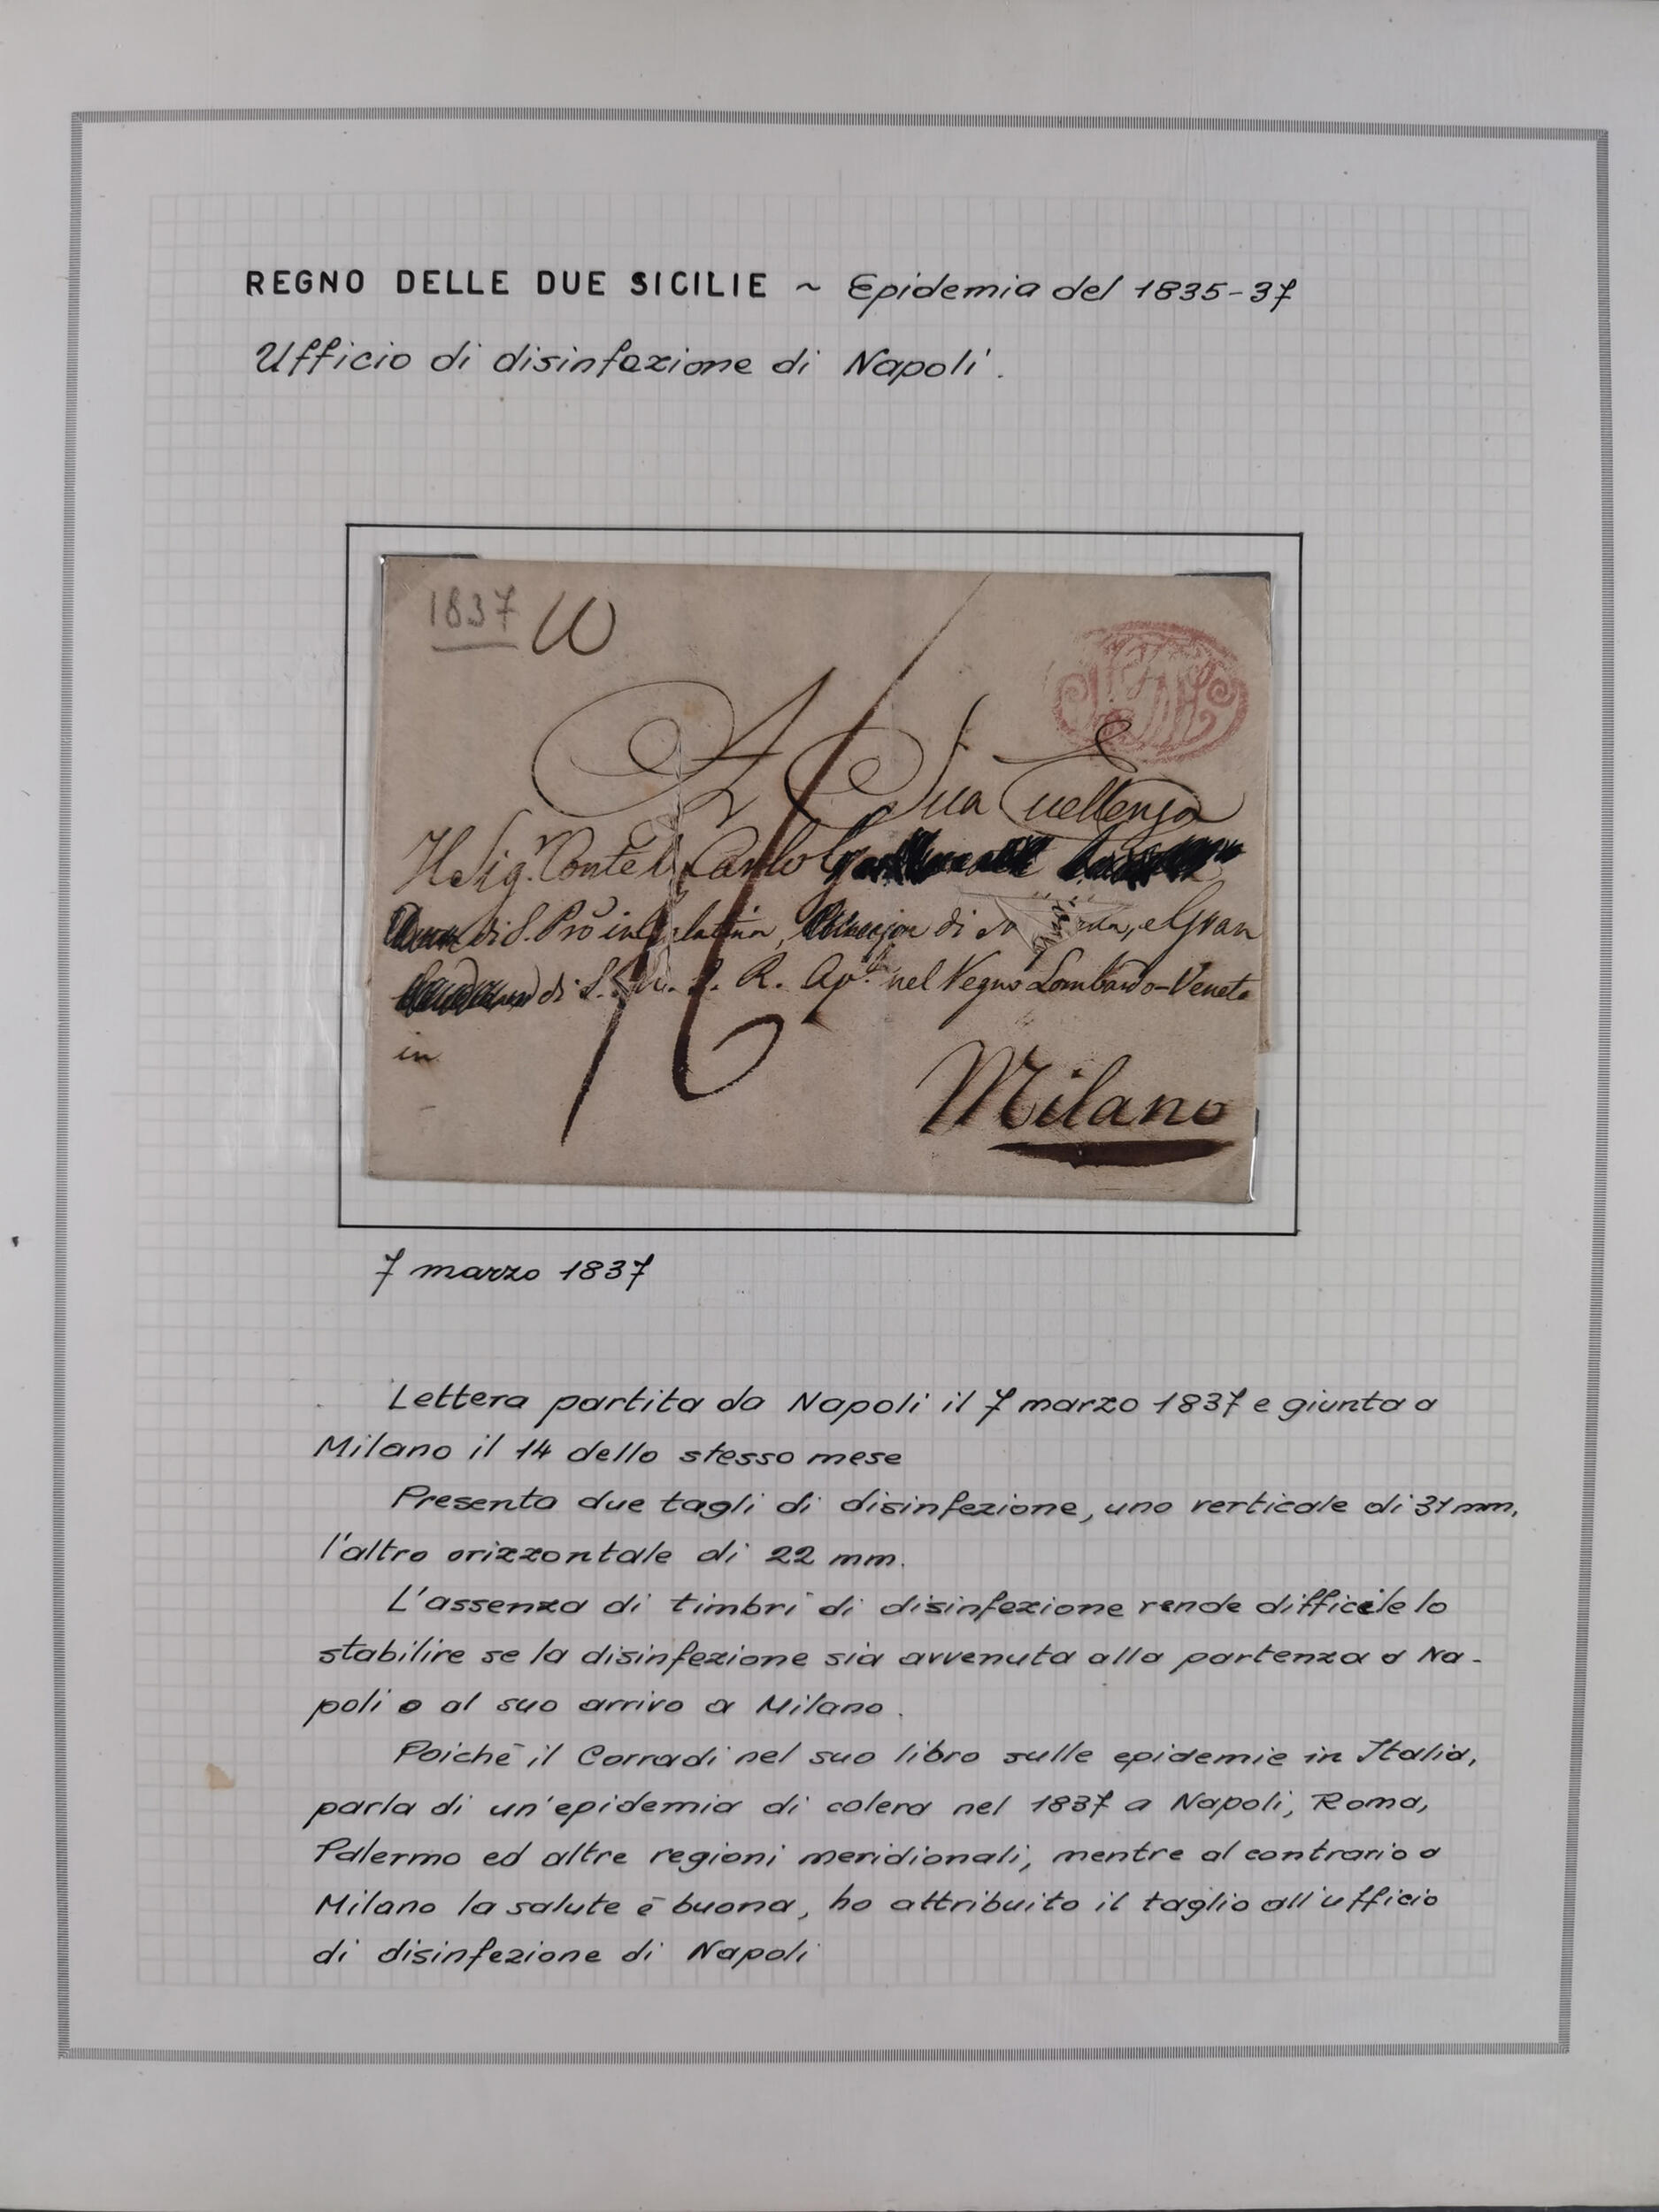 REGNO DELLE DUE SICILIE ~ Epidemia del 1835-37
Ufficio di disinfezione di Napoli.
1837
A Sua Eccellenza
Il Sig.r Conte Carlo
di S.
di e Gran
di S. R. Ap. nel Regno Lombardo-Veneto
in
Milano
7 marzo 1837
Lettera partita da Napoli il 7 marzo 1837 e giunta a
Milano il 14 dello stesso mese
Presenta due tagli di disinfezione, uno verticale di 31 mm,
l'altro orizzontale di 22 mm.
L'assenza di timbri di disinfezione rende difficile lo
stabilire se la disinfezione sia avvenuta alla partenza a Na-
poli o al suo arrivo a Milano.
Poichè il Corradi nel suo libro sulle epidemie in Italia,
parla di un'epidemia di colera nel 1837 a Napoli, Roma,
Palermo ed altre regioni meridionali, mentre al contrario a
Milano la salute è buona, ho attribuito il taglio all'ufficio
di disinfezione di Napoli